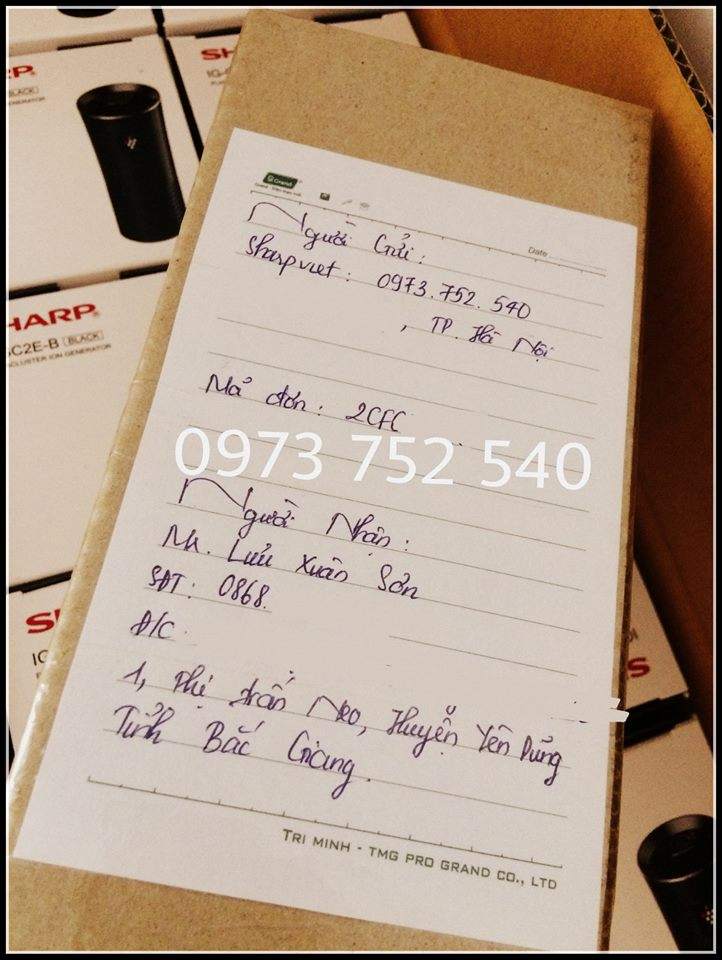 SHARP
IG-
RP
BLACK
GENERATOR
Grand
Date
Người Gửi:
Sharpviet: 0973.752.540
, TP. Hà Nội
Mả đơn: 2CFC
0973 752 540
Người Nhận:
Mr. Lưu Xuân Sơn
SĐT: 0868.
Đ/C
1, thị trấn Neo, Huyện Yên Dũng
Tỉnh Bắc Giang.
TRI MINH - TMG PRO GRAND CO., LTD
HARP
GC2E-B BLACK
ACLUSTER ION GENERATOR
S
IG